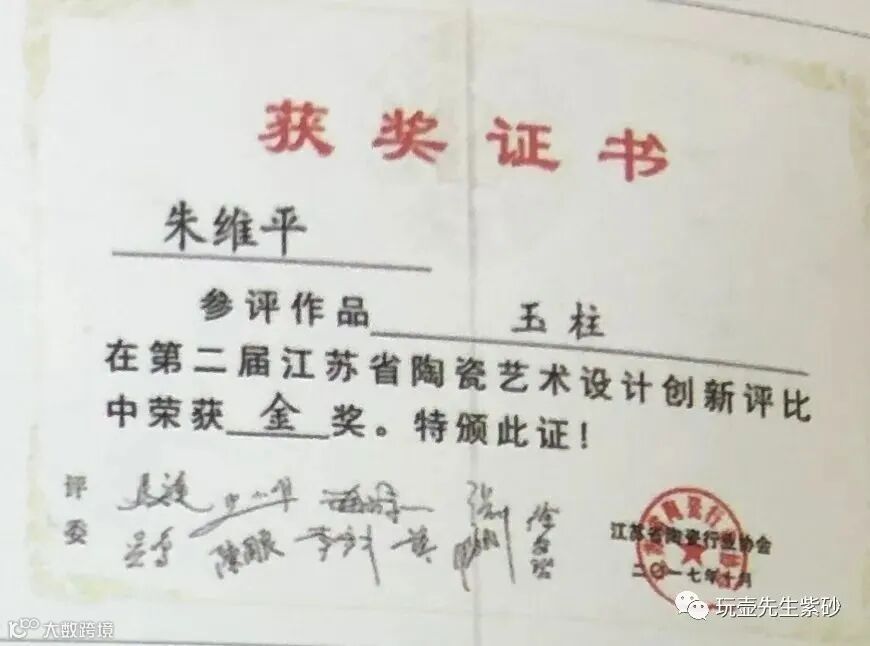 获奖证书
朱维平
参评作品 玉柱
在第二届江苏省陶瓷艺术设计创新评比
中荣获 金 奖。特颁此证！
评委
江苏省陶瓷行业协会
二〇一七年十月
玩壶先生紫砂
大数跨境